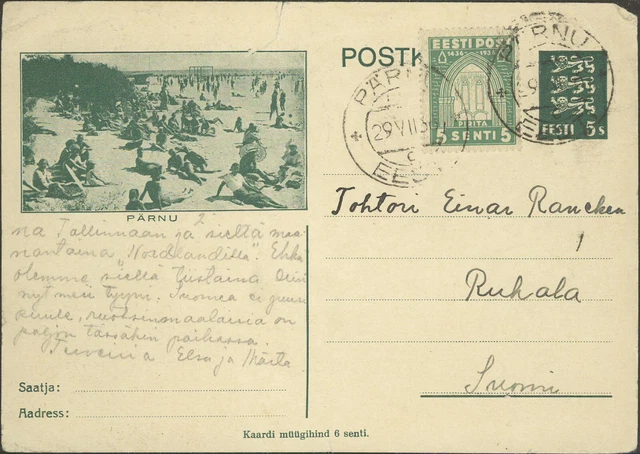 POSTK
EESTI POST
1436 1936
PIRITA
5 SENTI 5
PÄRNU
29 VII 36
EESTI
PÄRNU
EESTI 5 s
PÄRNU
na Tallinnaan ja sieltä maa
nantaina „Nordlandilla". Ehkä
olemme siellä tiistaina.
nyt meri tyyni. Suomea ei juuri
kuule, ruotsinmaalaisia on
paljon tässäkin paikassa.
Terveisiä Elsa ja Märta
Tohtori Einar Rancken
Ruhala
Suomi
Saatja:
Aadress:
Kaardi müügihind 6 senti.